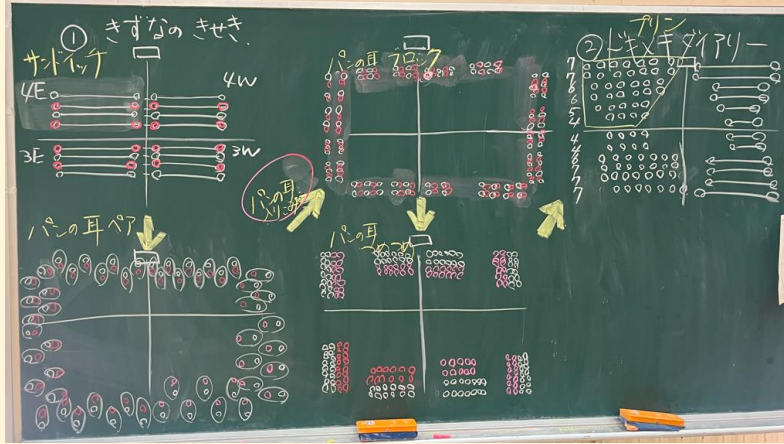 ① きずなの きせき
サンドイッチ
4E
4W
3E
3W
パンの耳ペア
パンの耳
パンの耳 ブロック
パンの耳 つめつめ
プリン
② ドキメキダイアリー
7
7
7
8
6
5
4
4
4
6
8
7
7